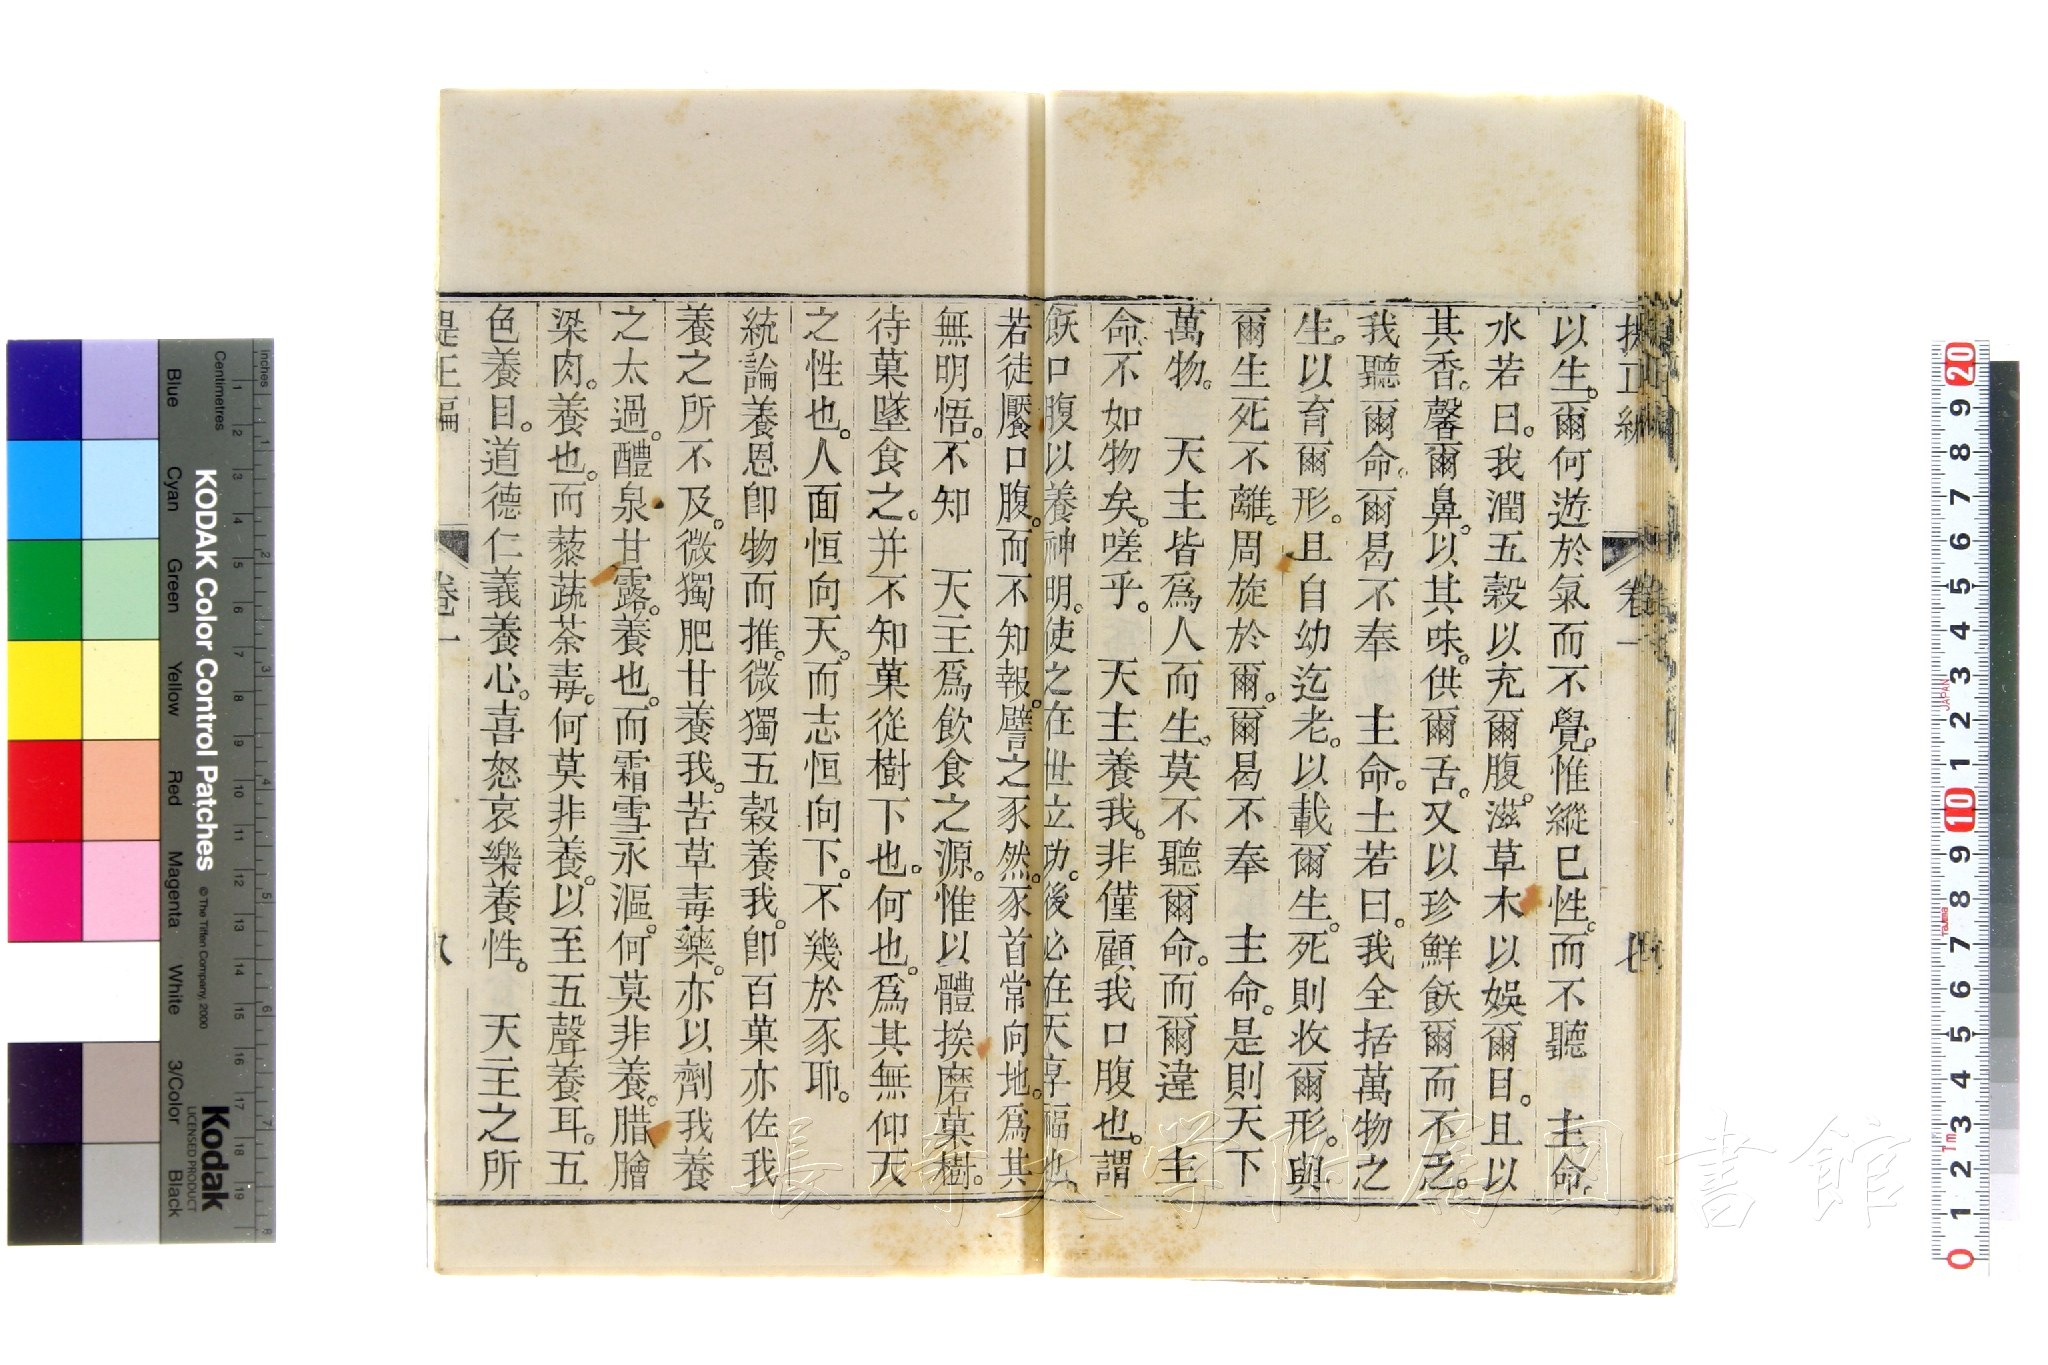 以生。爾何遊於氣而不覺。惟縱已性。而不聽　主命。
水若曰。我潤五穀以充爾腹。滋草木以娛爾目。且以
其香。馨爾鼻。以其味。供爾舌。又以珍鮮飫爾而不乏。
我聽爾命。爾曷不奉　主命。土若曰。我全括萬物之
生。以育爾形。且自幼迄老。以載爾生。死則收爾形。與
爾生死不離。周旋於爾。爾曷不奉　主命。是則天下
萬物。　天主皆爲人而生。莫不聽爾命。而爾違　主
命。不如物矣。嗟乎。　天主養我。非僅顧我口腹也。謂
飫口腹以養神明。使之在世立功。後必在天享福也。
若徒饜口腹。而不知報。譬之豕然。豕首常向地。爲其
無明悟。不知　天主爲飲食之源。惟以體挨磨菓樹。
待菓墜食之。并不知菓從樹下也。何也。爲其無仰天
之性也。人面恒向天。而志恒向下。不幾於豕耶。
統論養恩卽物而推。微獨五穀養我。卽百菓亦佐我
養之所不及。微獨肥甘養我。苦草毒藥。亦以劑我養
之太過。醴泉甘露。養也。而霜雪氷漚。何莫非養。腊膾
梁肉。養也。而藜蔬荼毒。何莫非養。以至五聲養耳。五
色養目。道德仁義養心。喜怒哀樂養性。　天主之所
提正編
卷一
八
KODAK Color Control Patches
© The Tiffen Company, 2000
Kodak
LICENSED PRODUCT
inches
Centimetres
Blue
Cyan
Green
Yellow
Red
Magenta
White
3/Color
Black
JAPAN
Tajima
長崎大学附属図書館